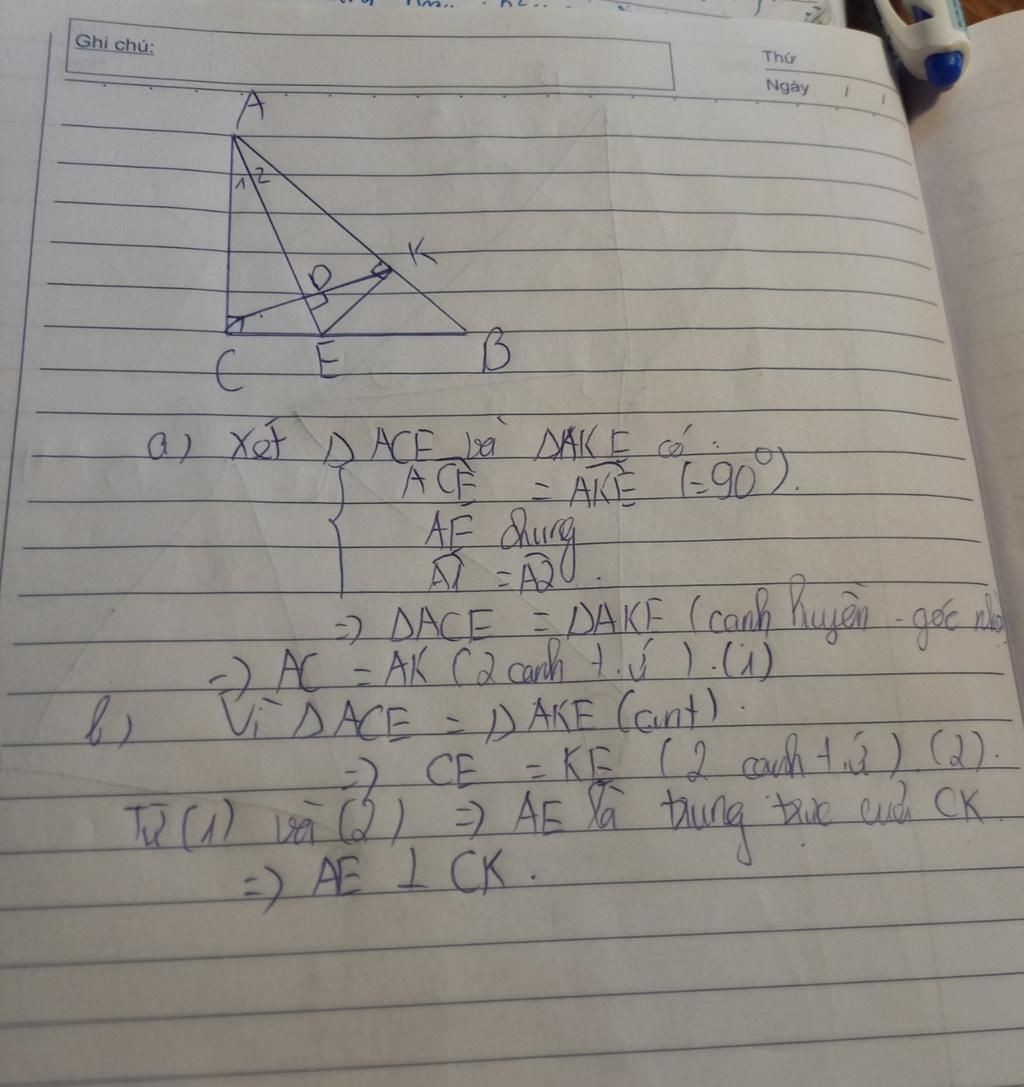 Ghi chú:
Thứ
Ngày / /
A
1 2
K
D
C E B
a) Xét Δ ACE và ΔAKE có:
ACE = AKE (=90°).
AE chung
A1 = A2.
=> ΔACE = ΔAKE (cạnh huyền - góc nhọ
=> AC = AK (2 cạnh t.ứ). (1)
b) Vì ΔACE = ΔAKE (cmt).
=> CE = KE (2 cạnh t.ứ) (2).
Từ (1) và (2) => AE là trung trực của CK
=> AE ⊥ CK.